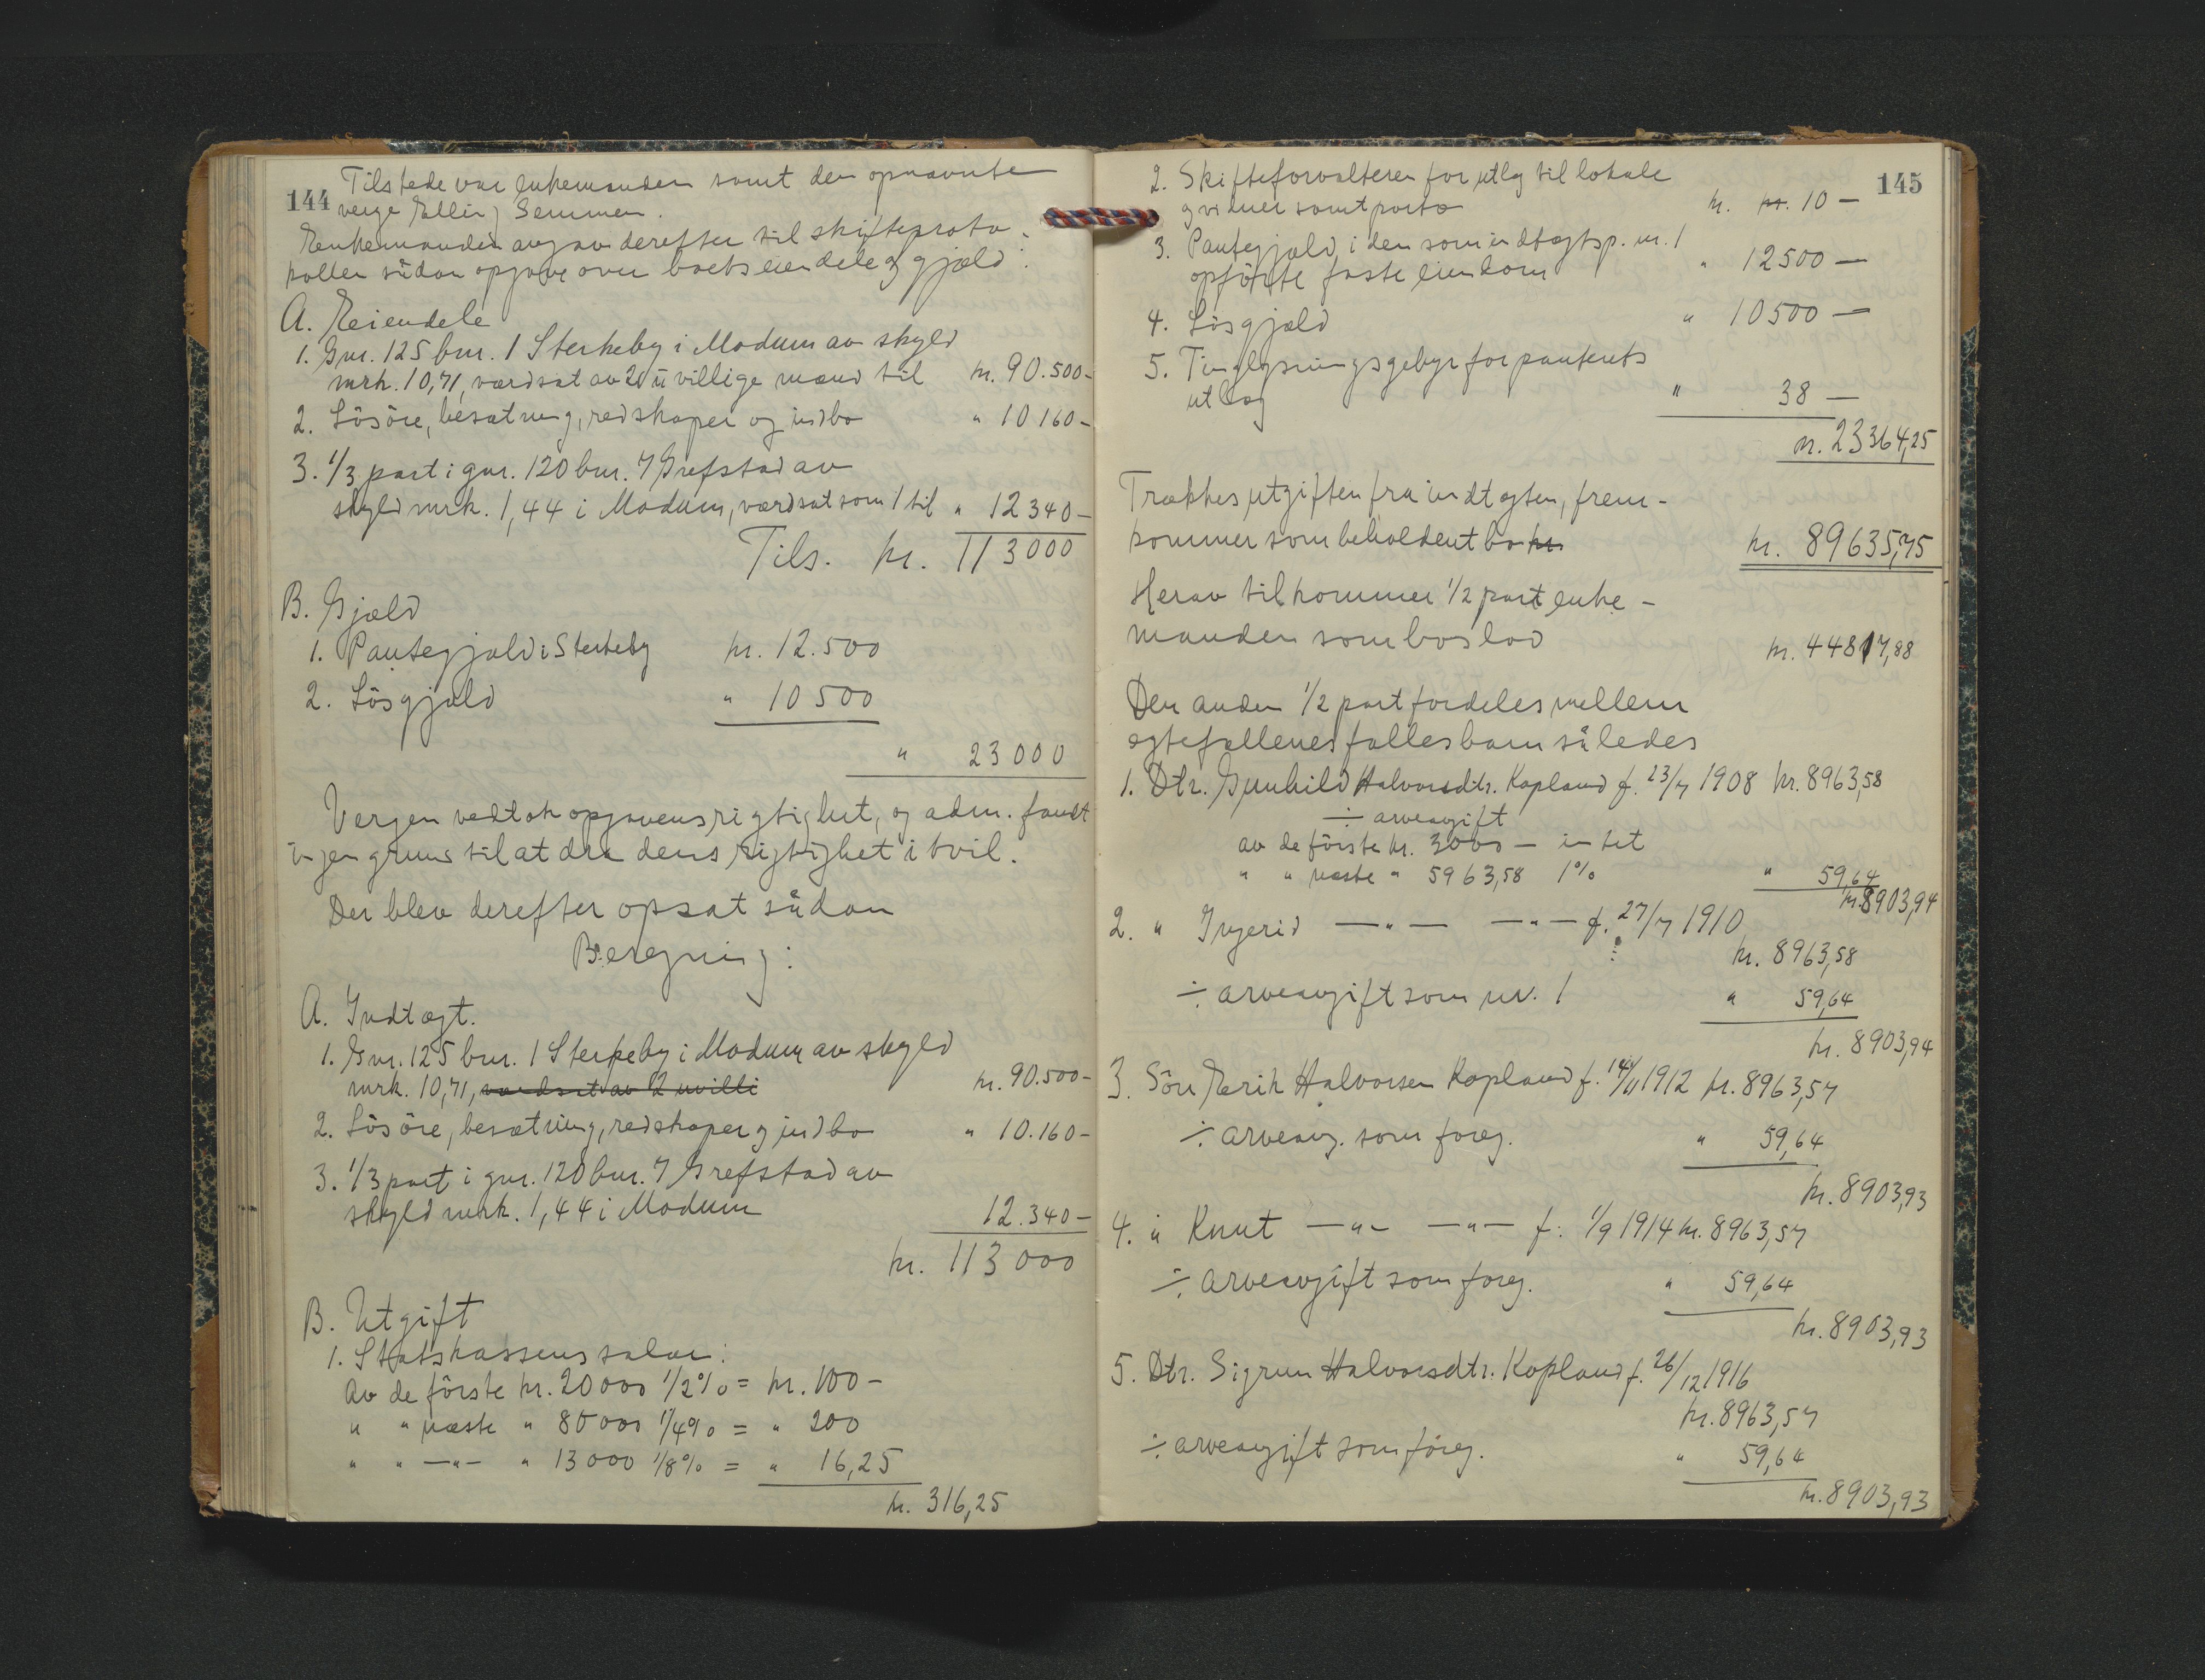 144
Tilstede var enkemanden samt den opnævnte
verge Elling Semmen.
Enkemanden angav derefter til skifteproto-
kollen sådan opgave over boets eiendele og gjæld:
A. Eiendele
1. Gnr. 125 bnr. 1 Sterkeby i Modum av skyld
mrk. 10,71, værdsat av 2 uvillige mænd til kr. 90.500-
2. Lösöre, besætning, redskaper og indbo " 10160-
3. 1/3 part i gnr. 120 bnr. 7 Grefstad av
skyld mrk. 1,44 i Modum, værdsat som 1 til " 12340-
Tils. kr. 113000
B. Gjæld
1. Pantegjæld i Sterkeby kr. 12.500
2. Lösgjæld " 10500
" 23000
Vergen vedtok opgavens rigtighet, og adm. fandt
ingen grund til at dra dens rigtighet i tvil.
Der blev derefter opsat sådan
Beregning:
A. Indtægt.
1. Gnr. 125 bnr. 1 Sterkeby i Modum av skyld
mrk. 10,71, værdsat av 2 uvilli kr. 90.500-
2. Lösöre, besætning, redskaper og indbo " 10.160-
3. 1/3 part i gnr. 120 bnr. 7 Grefstad av
skyld mrk. 1,44 i Modum 12.340-
kr. 113000
B. Utgift
1. Statskassens salær:
Av de förste kr. 20000 1/2% = kr. 100-
" " næste " 80000 1/4% = " 200
" " —"— " 13000 1/8% = " 16,25
kr. 316,25
145
2. Skifteforvalteren for utlæg til lokale
og vidner samt porto kr. kr. 10 —
3. Pantegjæld i den som indtægtsp. nr. 1
opförte faste eiendom " 12500 —
4. Lösgjæld " 10500 —
5. Tinglysningsgebyr for panterets
utlæg " 38 —
kr. 23364,25
Trækkes utgiften fra indtægten, frem-
kommer som beholdent bo kr. kr. 89635,75
Herav tilkommer 1/2 part enke-
manden som boslod kr. 44817,88
Den anden 1/2 part fordeles mellem
egtefællenes fællesbarn således
1. Dtr. Gunhild Halvorsdtr. Kopland f. 23/7 1908 kr. 8963,58
÷ arveavgift
av de förste kr. 3000 — intet
" " næste " 5963,58 1% " 59,64
kr. 8903,94
2. " Ingerid —"— —"— f. 27/7 1910
kr. 8963,58
÷ arveavgift som nr. 1 " 59,64
kr. 8903,94
3. Sön Erik Halvorsen Kopland f. 14/11 1912 kr. 8963,57
÷ arveavg. som foreg. " 59,64
kr. 8903,93
4. " Knut —"— —"— f. 1/9 1914 kr. 8963,57
÷ arveavgift som foreg. " 59,64
kr. 8903,93
5. Dtr. Sigrun Halvorsdtr. Kopland f. 26/12 1916
kr. 8963,57
÷ arveavgift som foreg. " 59,64
kr. 8903,93